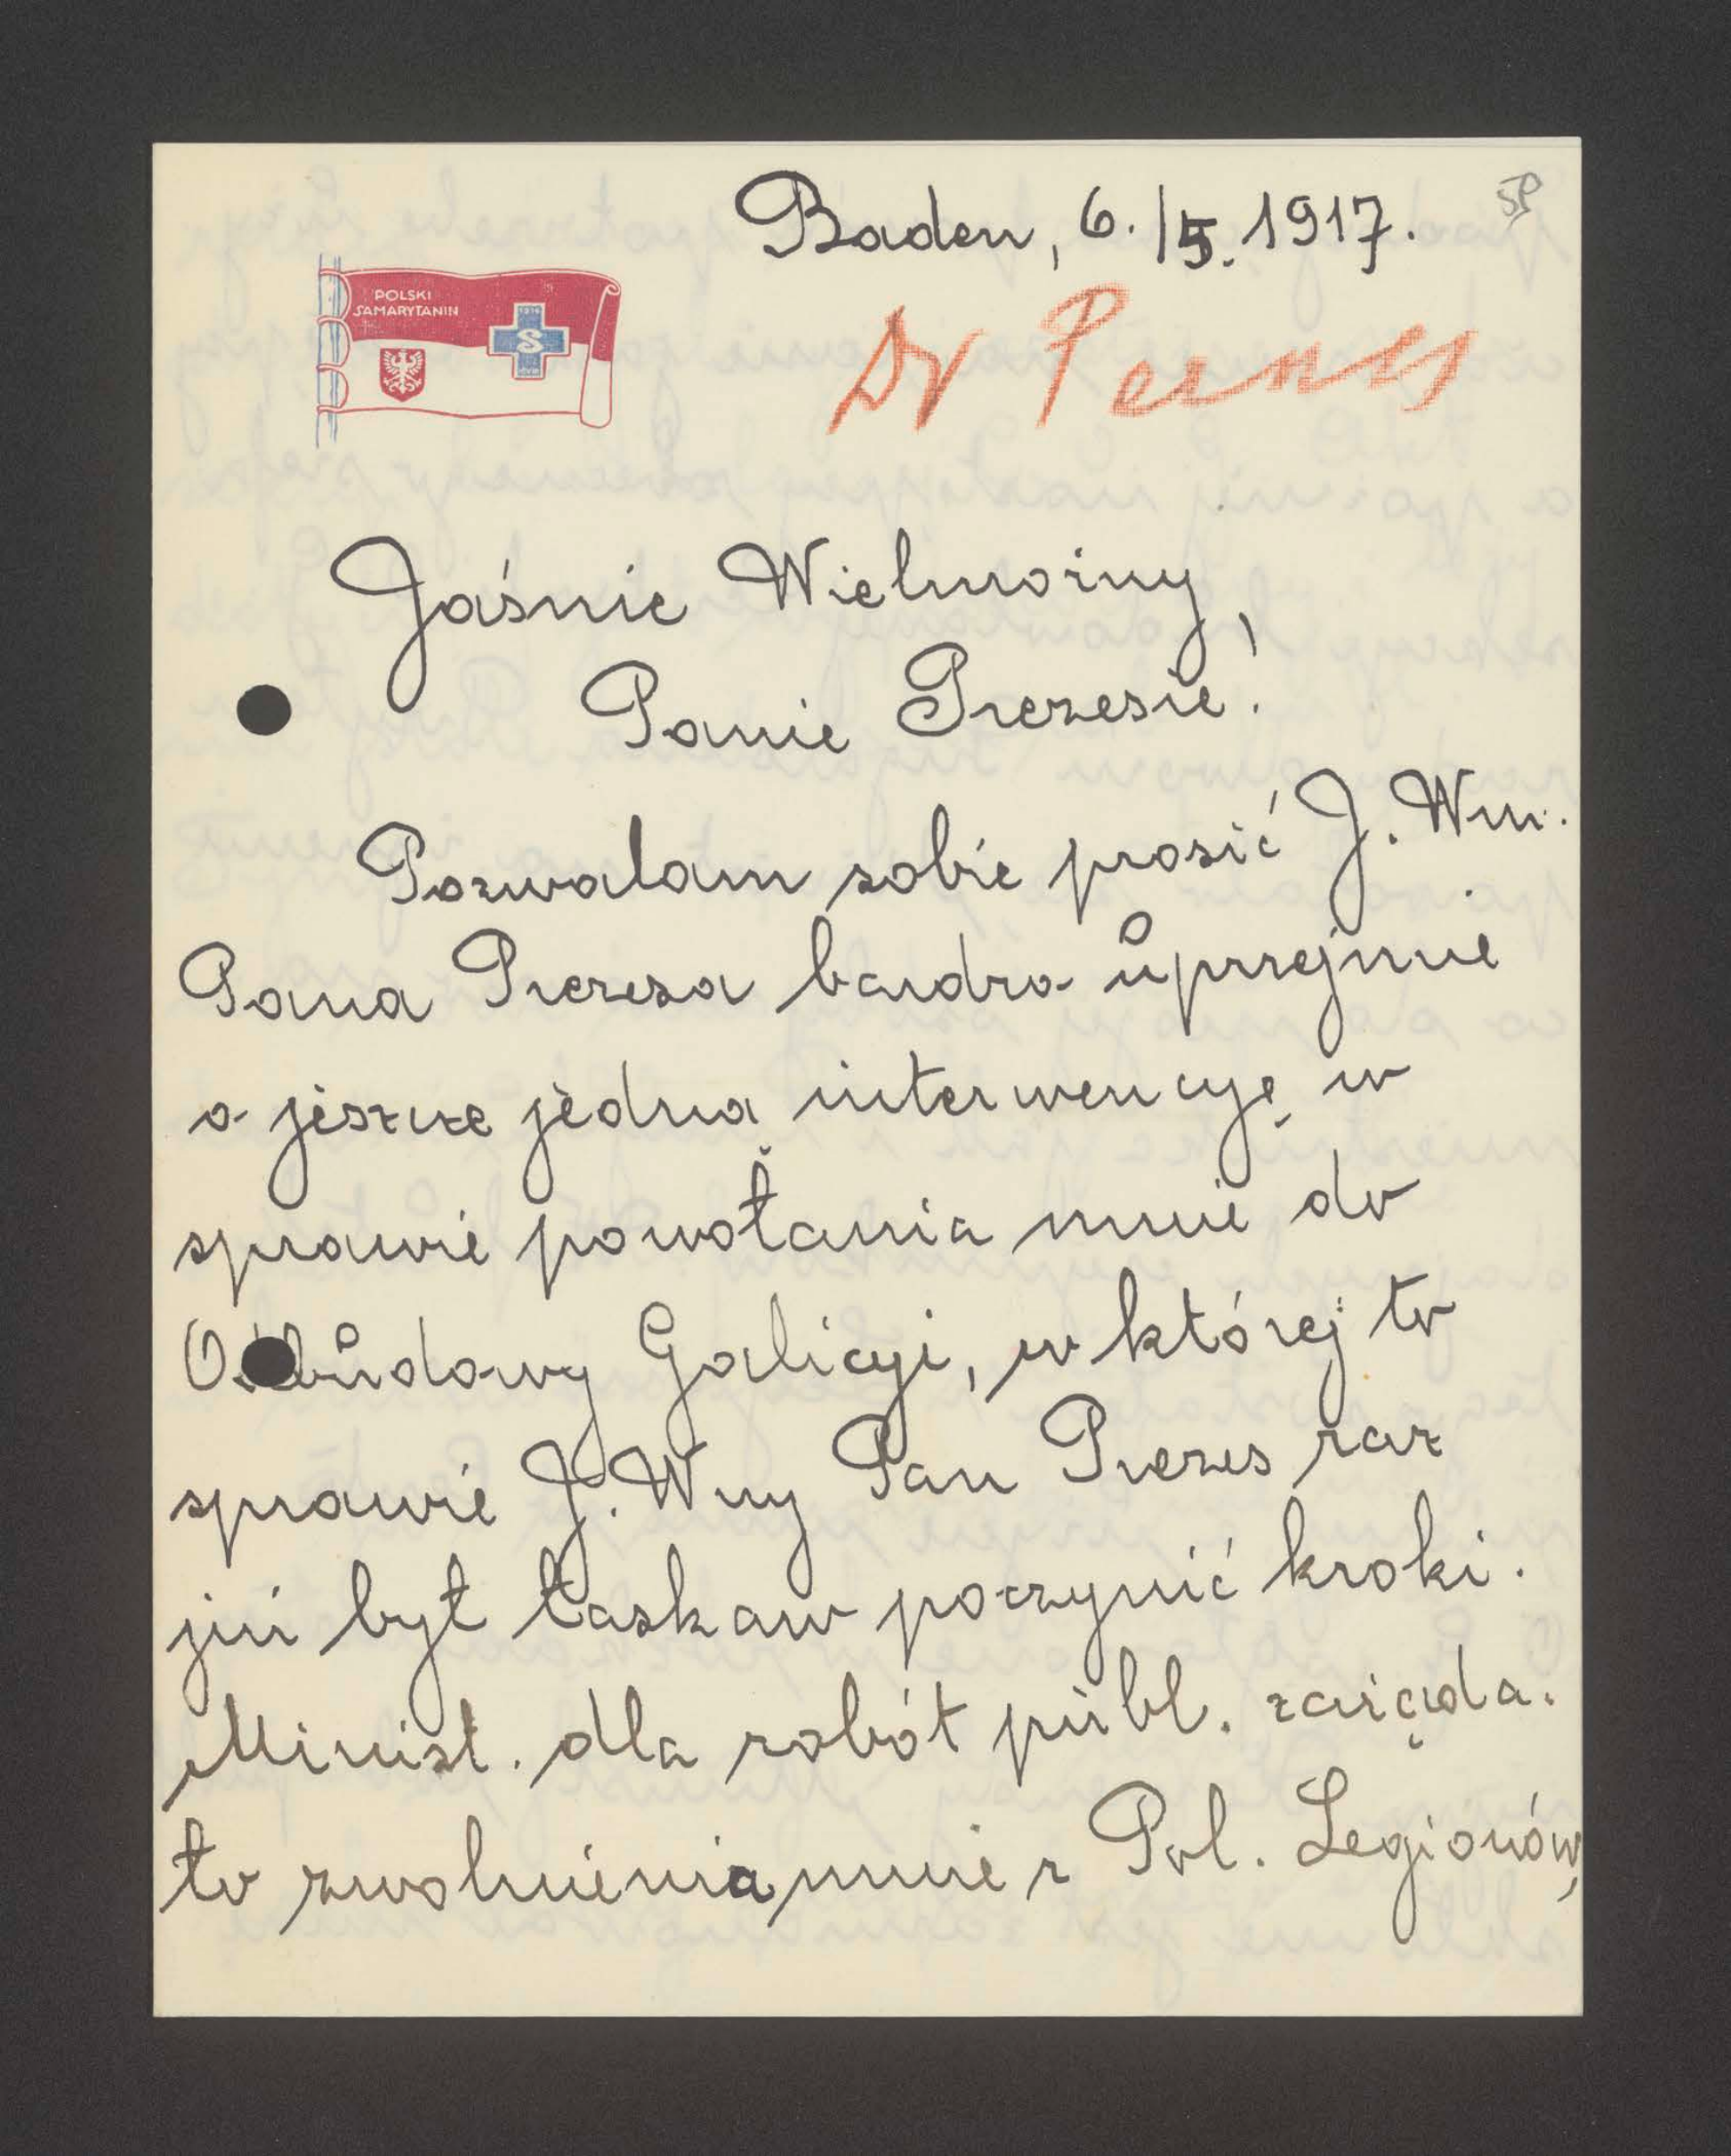 59
Baden, 6./5. 1917.
POLSKI
SAMARYTANIN
1914
S
Dr Pernes
Jaśnie Wielmożny
Panie Prezesie!
Pozwalam sobie prosić J. Wm.
Pana Prezesa bardzo uprzejmie
o jeszcze jedną interwencyę w
sprawie powołania mnie do
Odbudowy Galicyi, w której to
sprawie J. Wny Pan Prezes raz
już był łaskaw poczynić kroki.
Minist. dla robót publ. zażąda.
to zwolnienia mnie z Pol. Legionów,